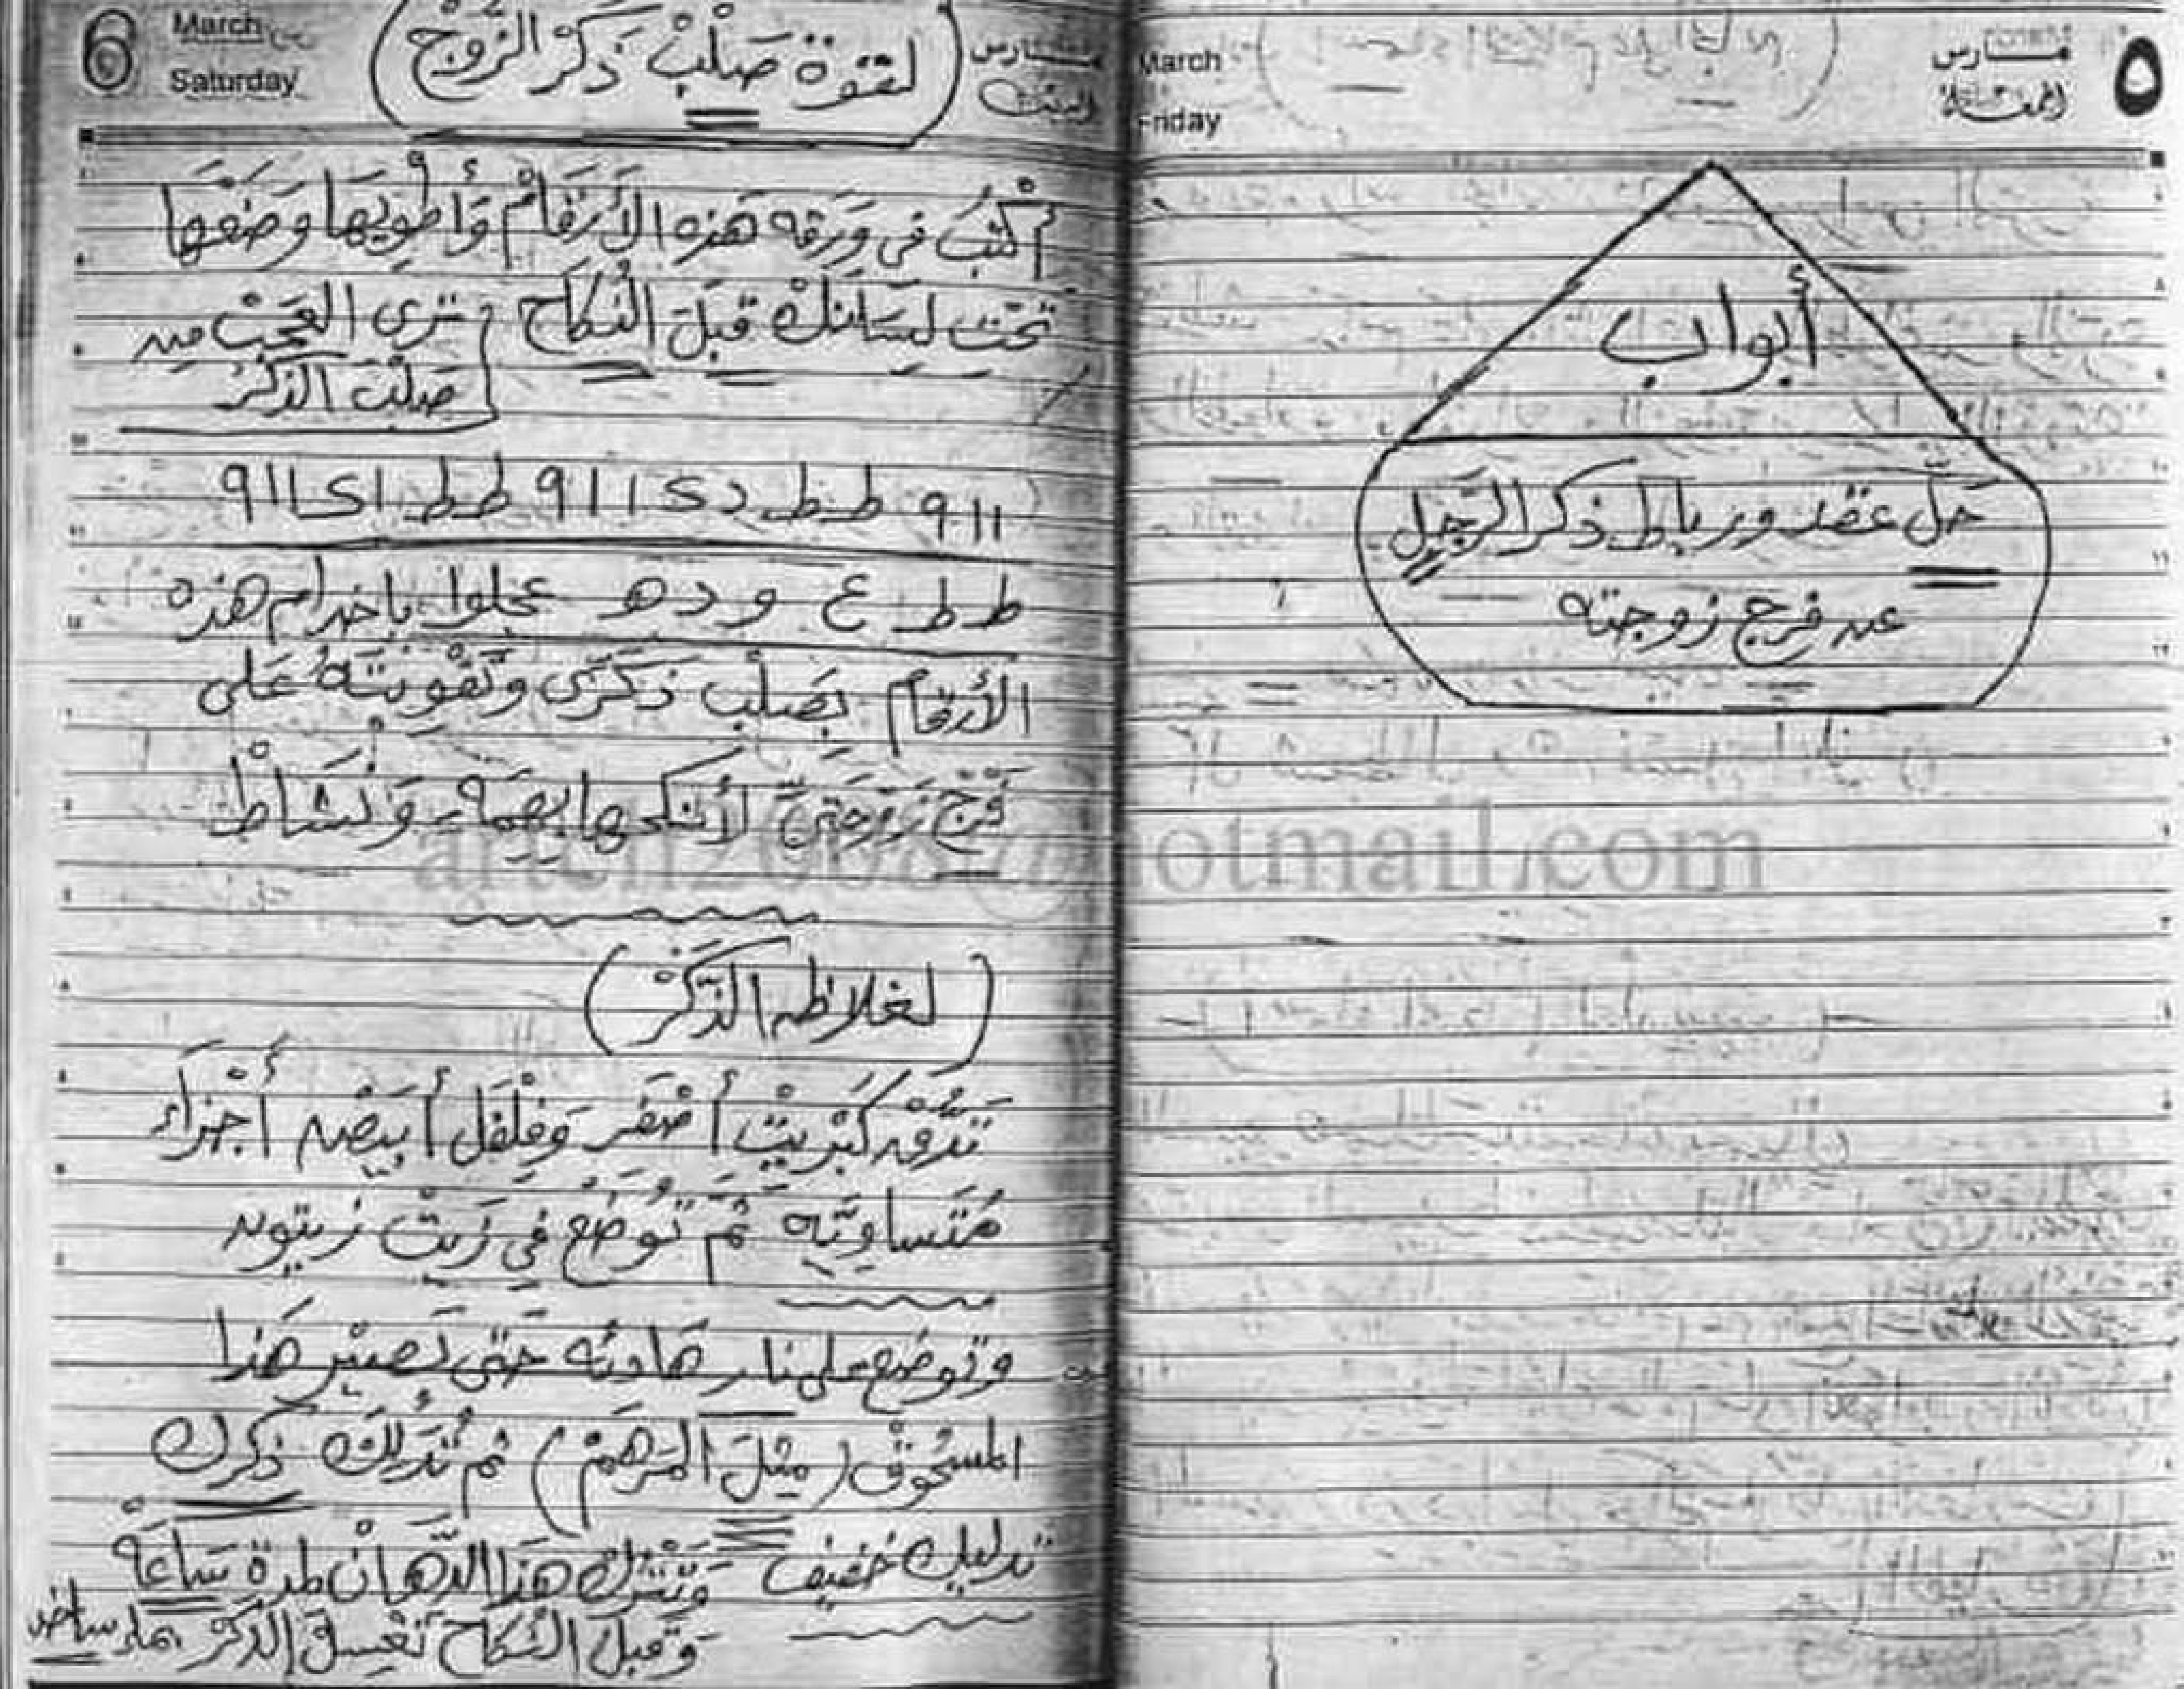 ٥
مارس
الجمعة
March
Friday
أبواب
حلّ عقد ورباط ذكر الرّجل
عن فرج زوجته
6
March
Saturday
مارس
السبت
(لقوة صَلْبْ ذَكَرْ الزَّوْجْ)
أكْتُبْ في وَرَقه هَذه الأَرقَامْ وَأطْويهَا وَضَعْهَا
تَحْت لِسَانِكْ قبلَ النُكَاح ترى العَجَبْ من
صَلْبْ الذَكَرْ
٩١١ ط ط د ٩١١٤٥ ط ط ٩١١٤١
ط ط ع و د ه عجلوا ياخدام هذه
الأرقام بِصَلْب ذَكَرَى وتَقْويَتَهُ عَلى
فَرْج زَوْجَتِيِّ لأنكحها بِهِمَة وَنَشَاطْ
arteh2008@hotmail.com
(لغلاظه الذَكَرْ)
تَدُقْ كَبْريتْ أصْفَر وَفِلْفَل أبيَض أجْزَاَء
مُتَساوِيَه ثُمَ تُوضَع فِي زَيتْ زيتون
وتوضع على نار هَادئه حَتى تَصيْر هَذا
المسْحُوقْ (مِثْلَ المَرهَمْ) ثم تُدَلِكْ ذكرك
تدليك خفيف وَتَتْرك هَذا الدَّهَانْ لمدة سَاعَةْ
وَقبلَ النُكَاحْ تَغْسِلْ الذَكَرْ بماء ساخن